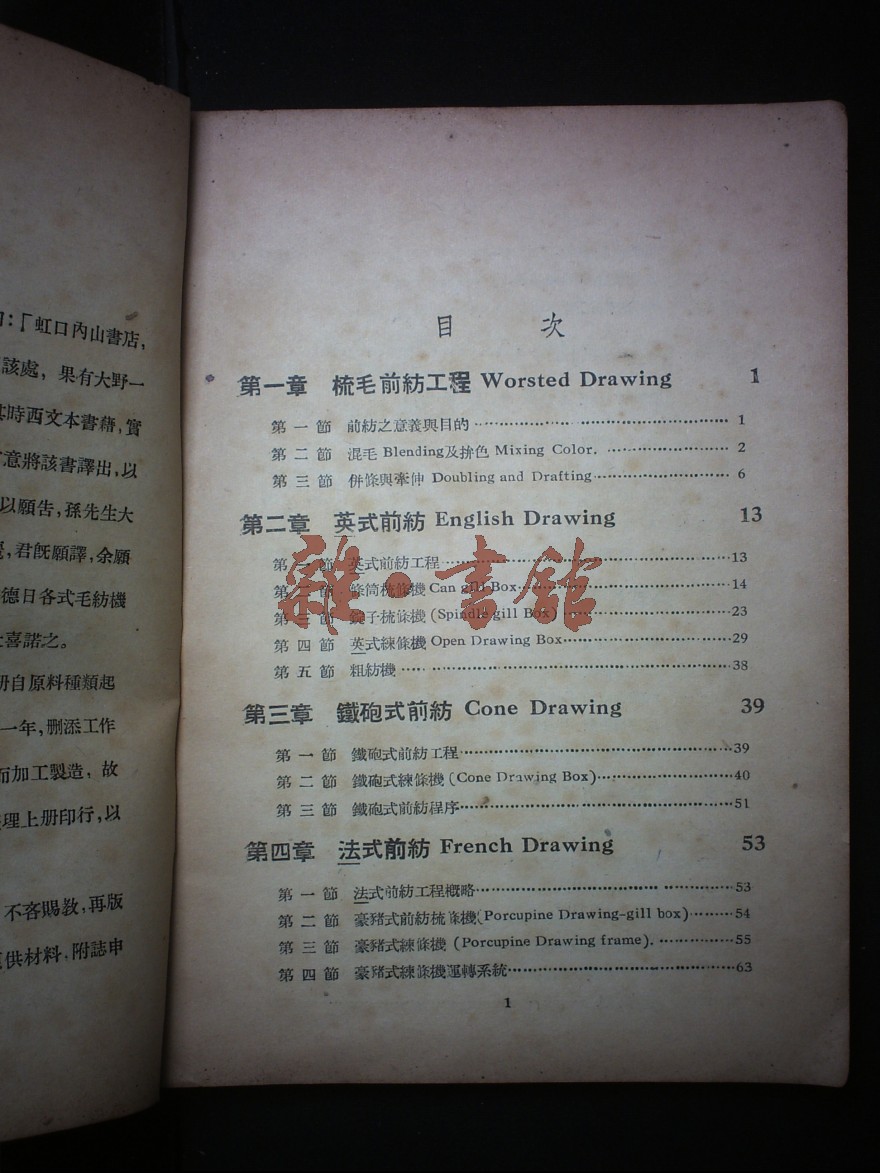 ：「虹口內山書店，
該處，果有大野一
其時西文本書藉，實
意將該書譯出，以
以願告，孫先生大
君旣願譯，余願
德日各式毛紡機
喜諾之。
册自原料種類起
一年，删添工作
而加工製造，故
理上册印行，以
不吝賜敎，再版
供材料，附誌申
目 次
第一章 梳毛前紡工程 Worsted Drawing 1
第一節 前紡之意義與目的 1
第二節 混毛 Blending及拚色 Mixing Color. 2
第三節 併條與牽伸 Doubling and Drafting 6
第二章 英式前紡 English Drawing 13
第一節 英式前紡工程 13
第二節 條筒梳條機 Can gill Box 14
第三節 錠子梳條機 (Spindle gill Box) 23
第四節 英式練條機 Open Drawing Box 29
第五節 粗紡機 38
第三章 鐵砲式前紡 Cone Drawing 39
第一節 鐵砲式前紡工程 39
第二節 鐵砲式練條機 (Cone Drawing Box) 40
第三節 鐵砲式前紡程序 51
第四章 法式前紡 French Drawing 53
第一節 法式前紡工程概略 53
第二節 豪豬式前紡梳條機 (Porcupine Drawing-gill box) 54
第三節 豪豬式練條機 (Porcupine Drawing frame). 55
第四節 豪豬式練條機運轉系統 63
1
雜·書館